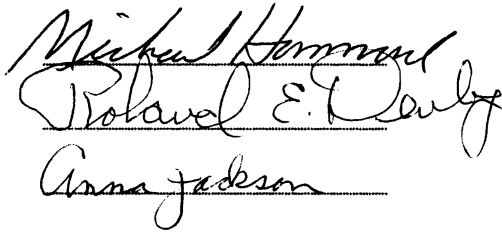 Michael Hammond
Roland E. Denby
Anna Jackson